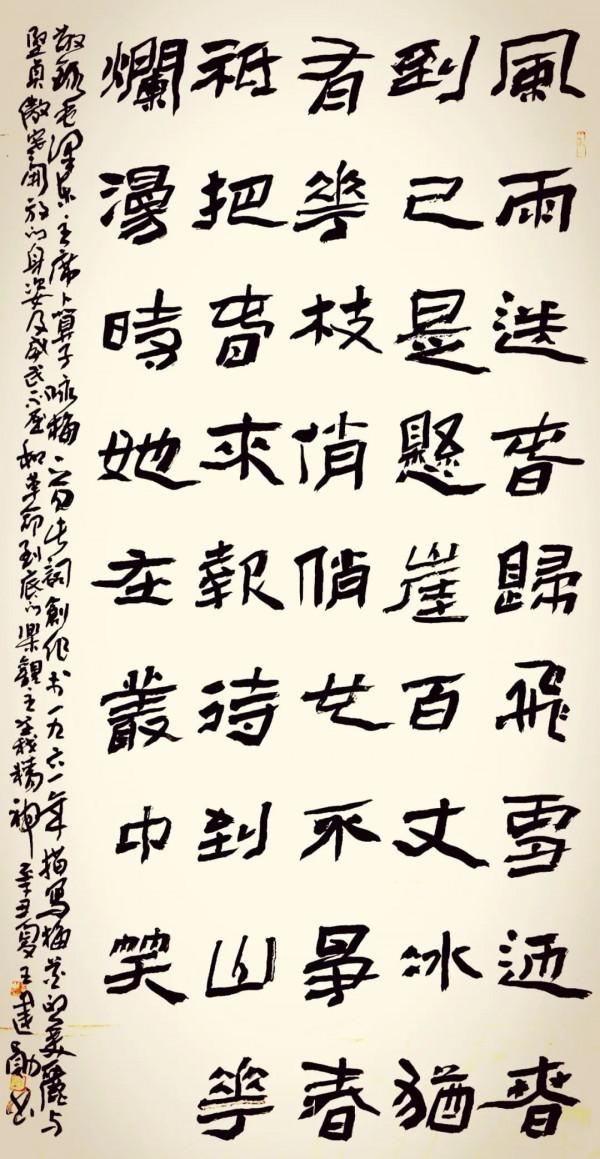 風雨送春歸飛雪迎春
到已是懸崖百丈冰猶
有花枝俏俏也不爭春
祇把春來報待到山花
爛漫時她在叢中笑
敬錄毛澤東主席卜算子咏梅一首此詞創作於一九六一年描寫梅花的美麗與
堅貞傲寒開放的身姿及威武不屈和革命到底的樂觀主義精神辛丑夏王建勛書